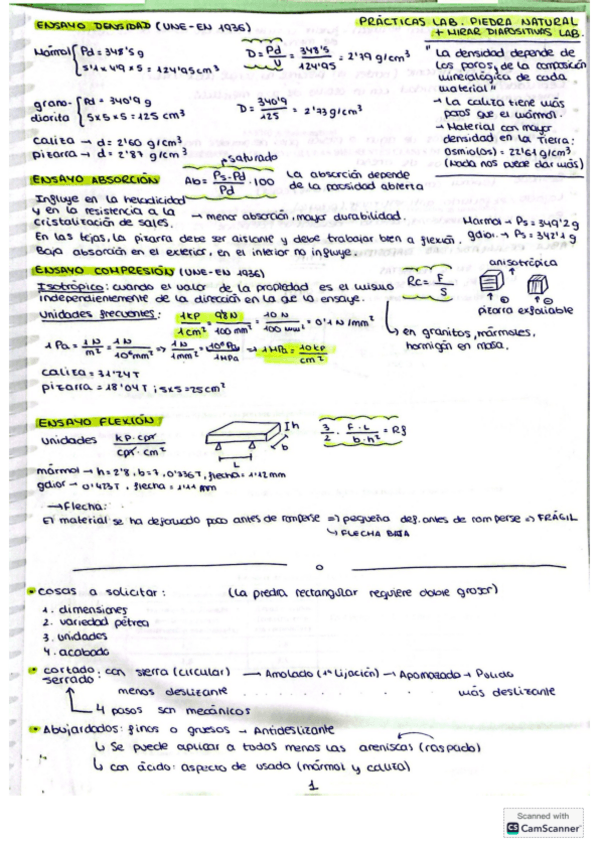 PRÁCTICAS LAB. PIEDRA NATURAL
+ MIRAR DIAPOSITIVAS LAB.
ENSAYO DENSIDAD (UNE-EN 1936)
Mármol { Pd = 348'5 g
5'1 x 4'9 x 5 = 124'95 cm³
D = Pd/V = 348'5/124'95 = 2'79 g/cm³
grano-diorita { Pd = 340'9 g
5 x 5 x 5 = 125 cm³
D = 340'9/125 = 2'73 g/cm³
caliza → d = 2'60 g/cm³
pizarra → d = 2'87 g/cm³
"La densidad depende de
los poros, de la composición
mineralógica de cada
material"
→ La caliza tiene más
poros que el mármol.
→ Material con mayor
densidad en la Tierra:
(osmiolos) = 22'61 g/cm³
(Nada nos puede dar más)
ENSAYO ABSORCIÓN
Ab = Ps-Pd/Pd · 100
→ saturado
La absorción depende
de la porosidad abierta
Influye en la heladicidad
y en la resistencia a la
cristalización de sales.
→ menor absorción, mayor durabilidad.
Mármol → Ps = 349'2 g
gdior. → Ps = 342'1 g
En las tejas, la pizarra debe ser aislante y debe trabajar bien a flexión.
Baja absorción en el exterior, en el interior no influye.
ENSAYO COMPRESIÓN (UNE-EN 1936)
Isotrópico: cuando el valor de la propiedad es el mismo
independientemente de la dirección en la que la ensaye.
Rc = F/S
anisotrópica
pizarra exfoliable
Unidades frecuentes: 1kp/1cm² = 9'8N/100 mm² = 10 N/100 mm² = 0'1 N/mm²
↳ en granitos, mármoles,
hormigón en masa.
1 Pa = 1N/m² = 1N/10⁶mm² => 1N/1mm² = 10⁶Pa/1MPa => 1MPa = 10kp/cm²
caliza = 31'24T
pizarra = 18'04T ; 5x5 = 25cm²
ENSAYO FLEXIÓN:
Unidades kp·cm/cm·cm²
h
b
L
3/2 · F·L/b·h² = Rf
mármol → h = 2'8, b = 7, 0'336T, flecha = 1'12mm
gdior → 0'423T, flecha = 1'41 mm
→ Flecha:
El material se ha deformado poco antes de romperse => pequeña def. antes de romperse => FRÁGIL
↳ FLECHA BAJA
• cosas a solicitar: (La piedra rectangular requiere doble grosor)
1. dimensiones
2. variedad pétrea
3. unidades
4. acabado
• cortado: con sierra (circular) → Amolado (1ª lijación) → Apomazado → Pulido
serrado
menos deslizante . . . . . . . . . más deslizante
4 pasos son mecánicos
• Abujardados: finos o gruesos → Antideslizante
↳ Se puede aplicar a todos menos las areniscas (raspado)
↳ con ácido: aspecto de usada (mármol y caliza)
1
Scanned with
CS CamScanner